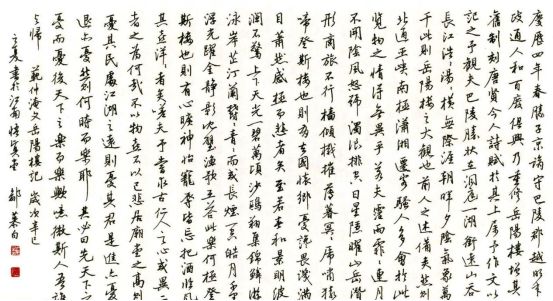 慶歷四年春滕子京謫守巴陵郡越明年
政通人和百廢俱興乃重修岳陽樓增其
舊制刻唐賢今人詩賦於其上屬予作文以
記之予觀夫巴陵勝狀在洞庭一湖銜遠山吞
長江浩浩湯湯橫無際涯朝暉夕陰氣象萬
千此則岳陽樓之大觀也前人之述備矣然則
北通巫峽南極瀟湘遷客騷人多會於此
覽物之情得無異乎若夫霪雨霏霏連月
不開陰風怒號濁浪排空日星隱曜山岳潛
形商旅不行檣傾楫摧薄暮冥冥虎嘯猿
啼登斯樓也則有去國懷鄉憂讒畏譏滿
目蕭然感極而悲者矣至若春和景明波
瀾不驚上下天光一碧萬頃沙鷗翔集錦鱗游
泳岸芷汀蘭鬱鬱青青而或長煙一空皓月千里
浮光躍金靜影沉璧漁歌互答此樂何極登
斯樓也則有心曠神怡寵辱皆忘把酒臨風
其喜洋洋者矣嗟夫予嘗求古仁人之心或異二
者之為何哉不以物喜不以己悲居廟堂之高則
憂其民處江湖之遠則憂其君是進亦憂
退亦憂然則何時而樂耶其必曰先天下之
憂而憂後天下之樂而樂歟噫微斯人吾誰
與歸 范仲淹文岳陽樓記 歲次辛巳
之夏書於江南 慕白